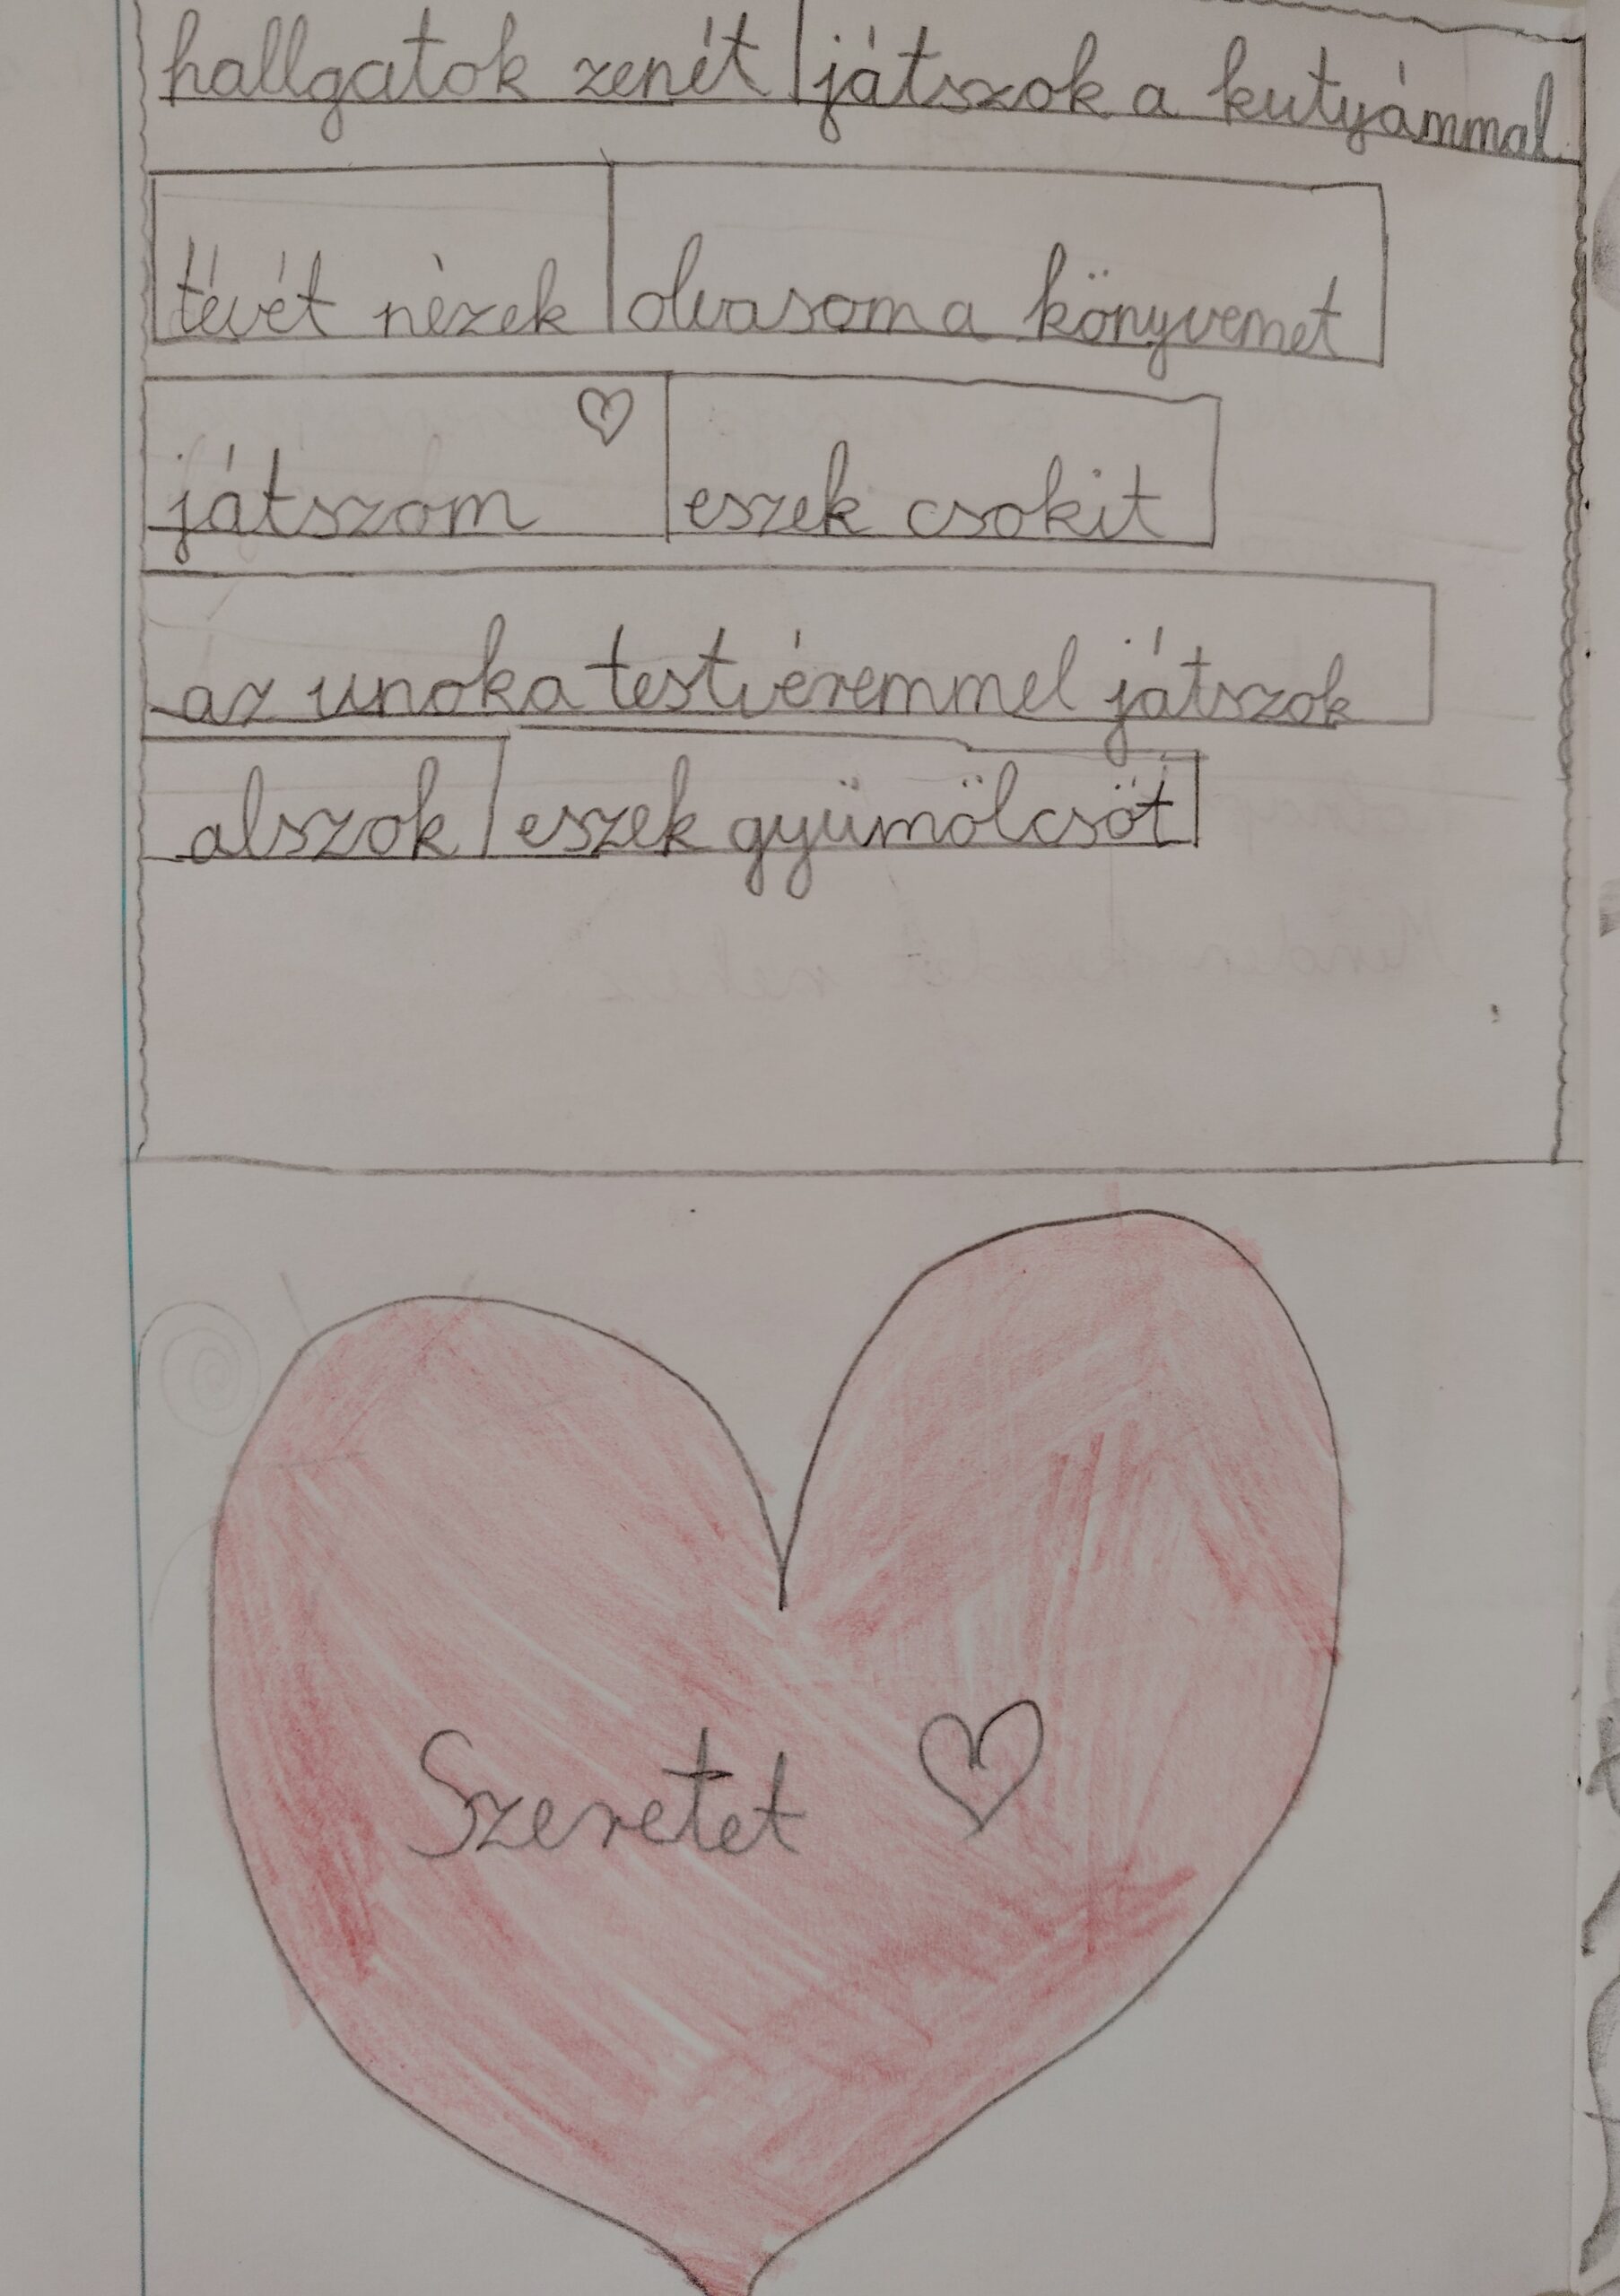 hallgatok zenét játszok a kutyámmal
tévét nèzek olvasom a könyvemet
játszom eszek csokit
az unoka testvéremmel játszok
alszok eszek gyümölcsöt
Szeretet